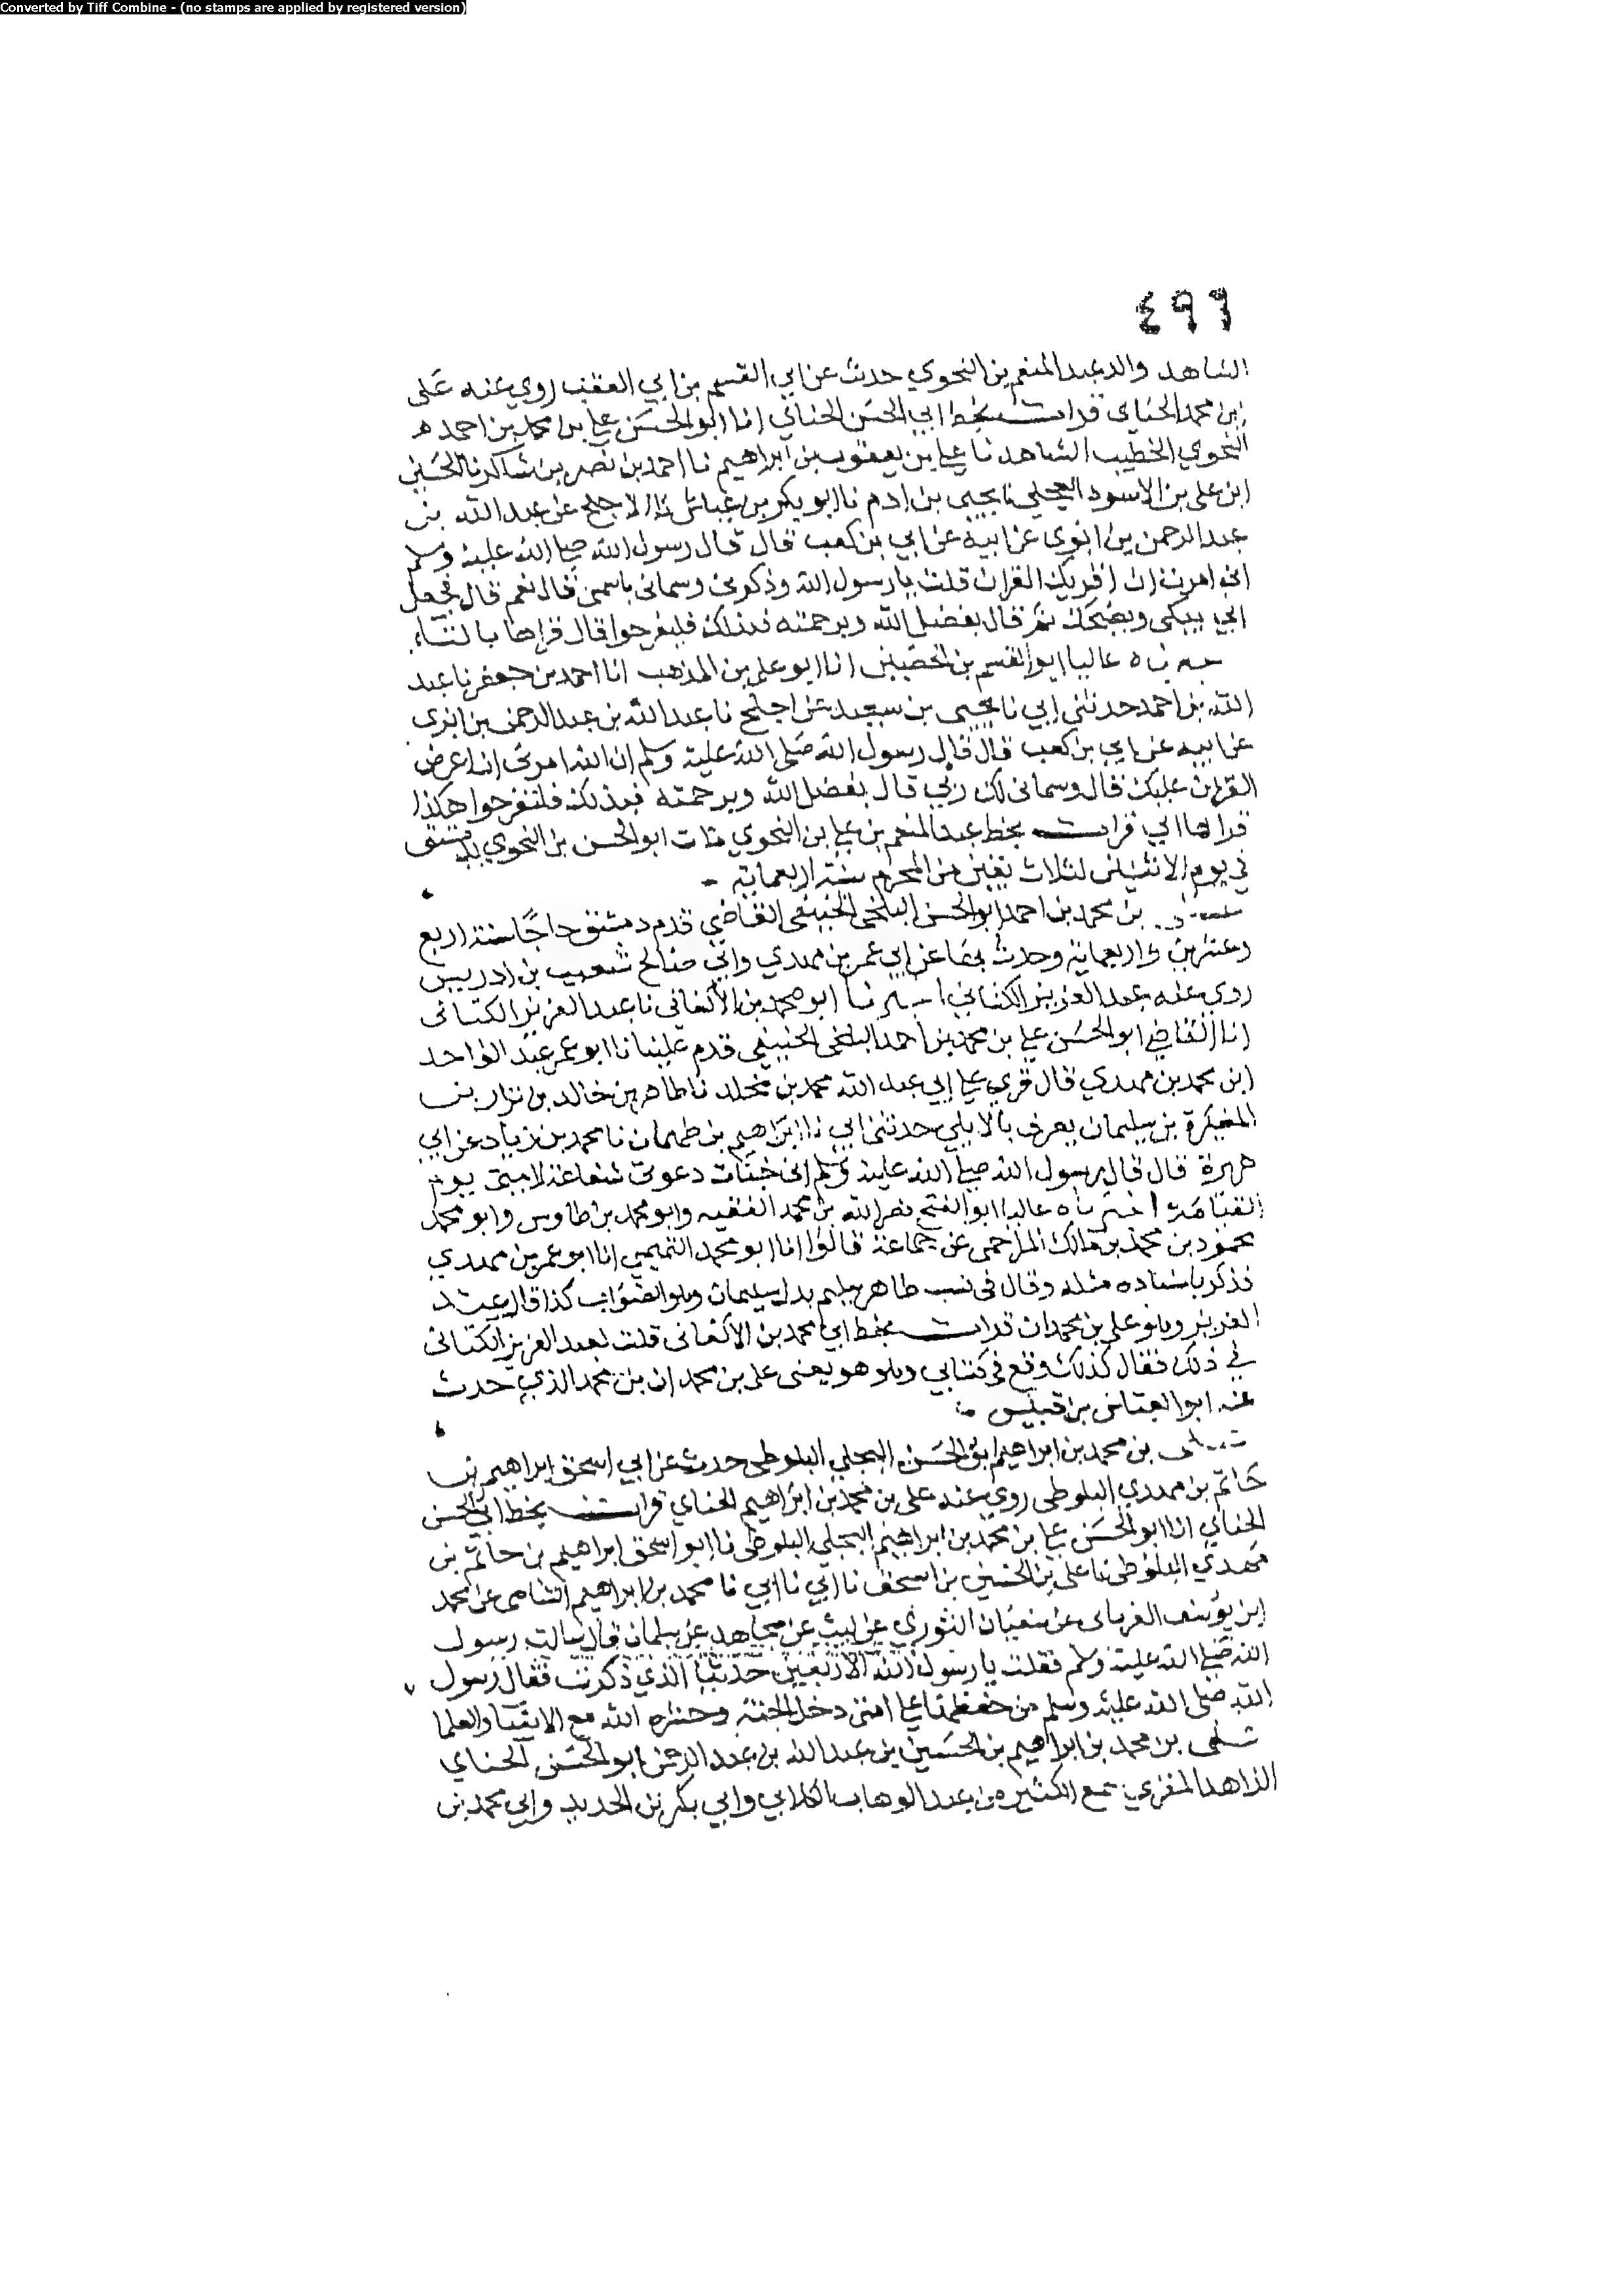 Converted by Tiff Combine - (no stamps are applied by registered version)
٤٩٩
الشاهد والد عبد المنعم بن النحوي حدث عن ابي القسم بن ابي العقب روى عنه على
بن محمد الحناي قرات بخط ابي الحسن الحناي انا ابو الحسن على بن محمد بن احمد
النحوي الخطيب الشاهد نا على بن يعقوب بن ابراهيم نا احمد بن نصر بن شاكر نا الحسين
ابن على بن الاسود العجلي نا يحيى بن ادم نا ابو بكر بن عياش نا الاجلح عن عبد الله بن
عبد الرحمن بن ابزى عن ابيه عن ابي بن كعب قال قال رسول الله صلى الله عليه وسلم
اني امرت ان اقريك القران قلت يا رسول الله وذكرني وسماني باسمي قال نعم قال فجعل
ابي يبكي ويضحك ثم قال بفضل الله وبرحمته فبذلك فليفرحوا قال قراها بالتاء
عاليا ابو القسم بن الحصين انا ابو على بن المذهب انا احمد بن جعفر نا عبد
الله بن احمد حدثني ابي نا يحيى بن سعيد عن اجلح نا عبد الله بن عبد الرحمن بن ابزى
عن ابيه عن ابي بن كعب قال قال رسول الله صلى الله عليه وسلم ان الله امرني ان اعرض
القران عليك قال وسماني لك ربي قال بفضل الله وبرحمته فبذلك فلتفرحوا هكذا
قراها ابي قرات بخط عبد المنعم بن على بن النحوي مات ابو الحسن بن النحوي بدمشق
في يوم الاثنين لثلاث بقين من المحرم سنة اربعماية
بن محمد بن احمد ابو الحسن البلخي الحنيفي القاضي قدم دمشق حاجا سنة اربع
وعشرين واربعماية وحدث بها عن ابي عمر بن مهدي وابي صالح شعيب بن ادريس
روى عنه عبد العزيز الكتاني ابو محمد بن الأكفاني نا عبد العزيز الكتاني
انا القاضي ابو الحسن على بن محمد بن احمد البلخي الحنيفي قدم علينا نا ابو عمر عبد الواحد
ابن محمد بن مهدي قال قري على ابي عبد الله محمد بن مخلد نا طاهر بن خالد بن نزار بن
المغيرة بن سليمان يعرف بالايلي حدثني ابي نا ابراهيم بن طهمان نا محمد بن زياد عن ابي
هريرة قال قال رسول الله صلى الله عليه وسلم اني خبات دعوتي شفاعة لامتي يوم
القيامة عاليا ابو الفتح نصر الله بن محمد الفقيه وابو محمد بن طاوس وابو محمد
محمود بن محمد بن مالك المزاحمي عن جماعة قالوا انا ابو محمد التميمي انا ابو عمر بن مهدي
فذكر باسناده مثله وقال في نسب طاهر سليم بدل سليمان وهو الصواب كذا قال عبد
العزيز وهو على بن محمدان قرات بخط ابي محمد بن الأكفاني قلت لعبد العزيز الكتاني
في ذلك فقال كذلك وقع في كتابي وهو هو يعني على بن محمدان بن محمد الذي حدث
عنه ابو العباس بن قبيس
بن محمد بن ابراهيم ابو الحسن البجلي البلوطي حدث عن ابي اسحق ابراهيم بن
حاتم بن مهدي البلوطي روى عنه على بن محمد بن ابراهيم الحناي قرات بخط ابي الحسن
الحناي انا ابو الحسن على بن محمد بن ابراهيم البجلي البلوطي نا ابو اسحق ابراهيم بن حاتم بن
مهدي البلوطي نا على بن الحسين بن اسحق نا ابي نا ابي نا محمد بن ابراهيم الشامى عن محمد
ابن يوسف الفريابى عن سفيان الثوري عن ليث عن مجاهد عن سلمان قال سالت رسول
الله صلى الله عليه وسلم فقلت يا رسول الله الاربعين حديثا الذي ذكرت فقال رسول
الله صلى الله عليه وسلم من حفظها على امتي دخل الجنة وحشره الله مع الانبيا والعلما
على بن محمد بن ابراهيم بن الحسين بن عبد الله بن عبد الرحمن ابو الحسن الحناي
الزاهد المقري سمع الكثير من عبد الوهاب الكلابي وابي بكر بن الحديد وابي محمد بن